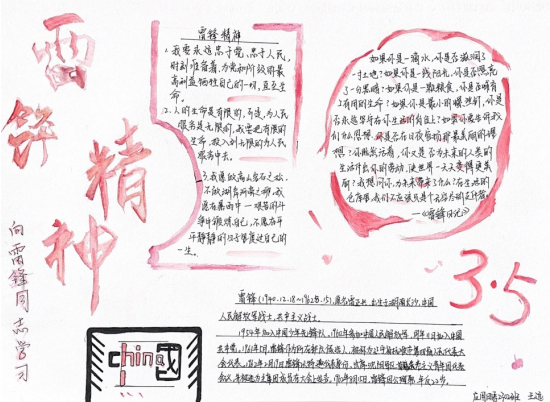 雷锋精神
向雷锋同志学习
雷锋精神
1.我要永远忠于党,忠于人民,
时刻准备着,为党和阶级的最
高利益牺牲自己的一切,直至生
命。
2.人的生命是有限的,可是,为人民
服务是无限的,我要把有限的
生命,投入到无限的为人民
服务中去。
3.我愿做高山岩石之松,
不做湖岸河旁之柳,我
愿在暴雨中一艰苦的斗
争中锻炼自己,不愿在平
平静静的日子里度过自己的
一生。
如果你是一滴水,你是否滋润了
一寸土地?如果你是一线阳光,你是否照亮
了一分黑暗?如果你是一颗粮食,你是否哺育
了有用的生命?如果你是最小的一颗螺丝钉,你是
否永远坚守在你生活的岗位上?如果你要告诉我
们什么思想,你是否在日夜宣扬那最美丽的理
想?你既然活着,你又是否为未来的人类的
生活付出你的劳动,使世界一天天变得更美
丽?我想问你,为未来带来了什么?在生活的
仓库里,我们不应该只是个无穷尽的支付者。
—《雷锋日记》
3.5
雷锋(1940.12.18-1962.8.15),原名雷正兴,出生于湖南长沙,中国
人民解放军战士,共产主义战士。
1954年加入中国少年先锋队,1960年参加中国人民解放军,同年11月加入中国
共产党。
china
國